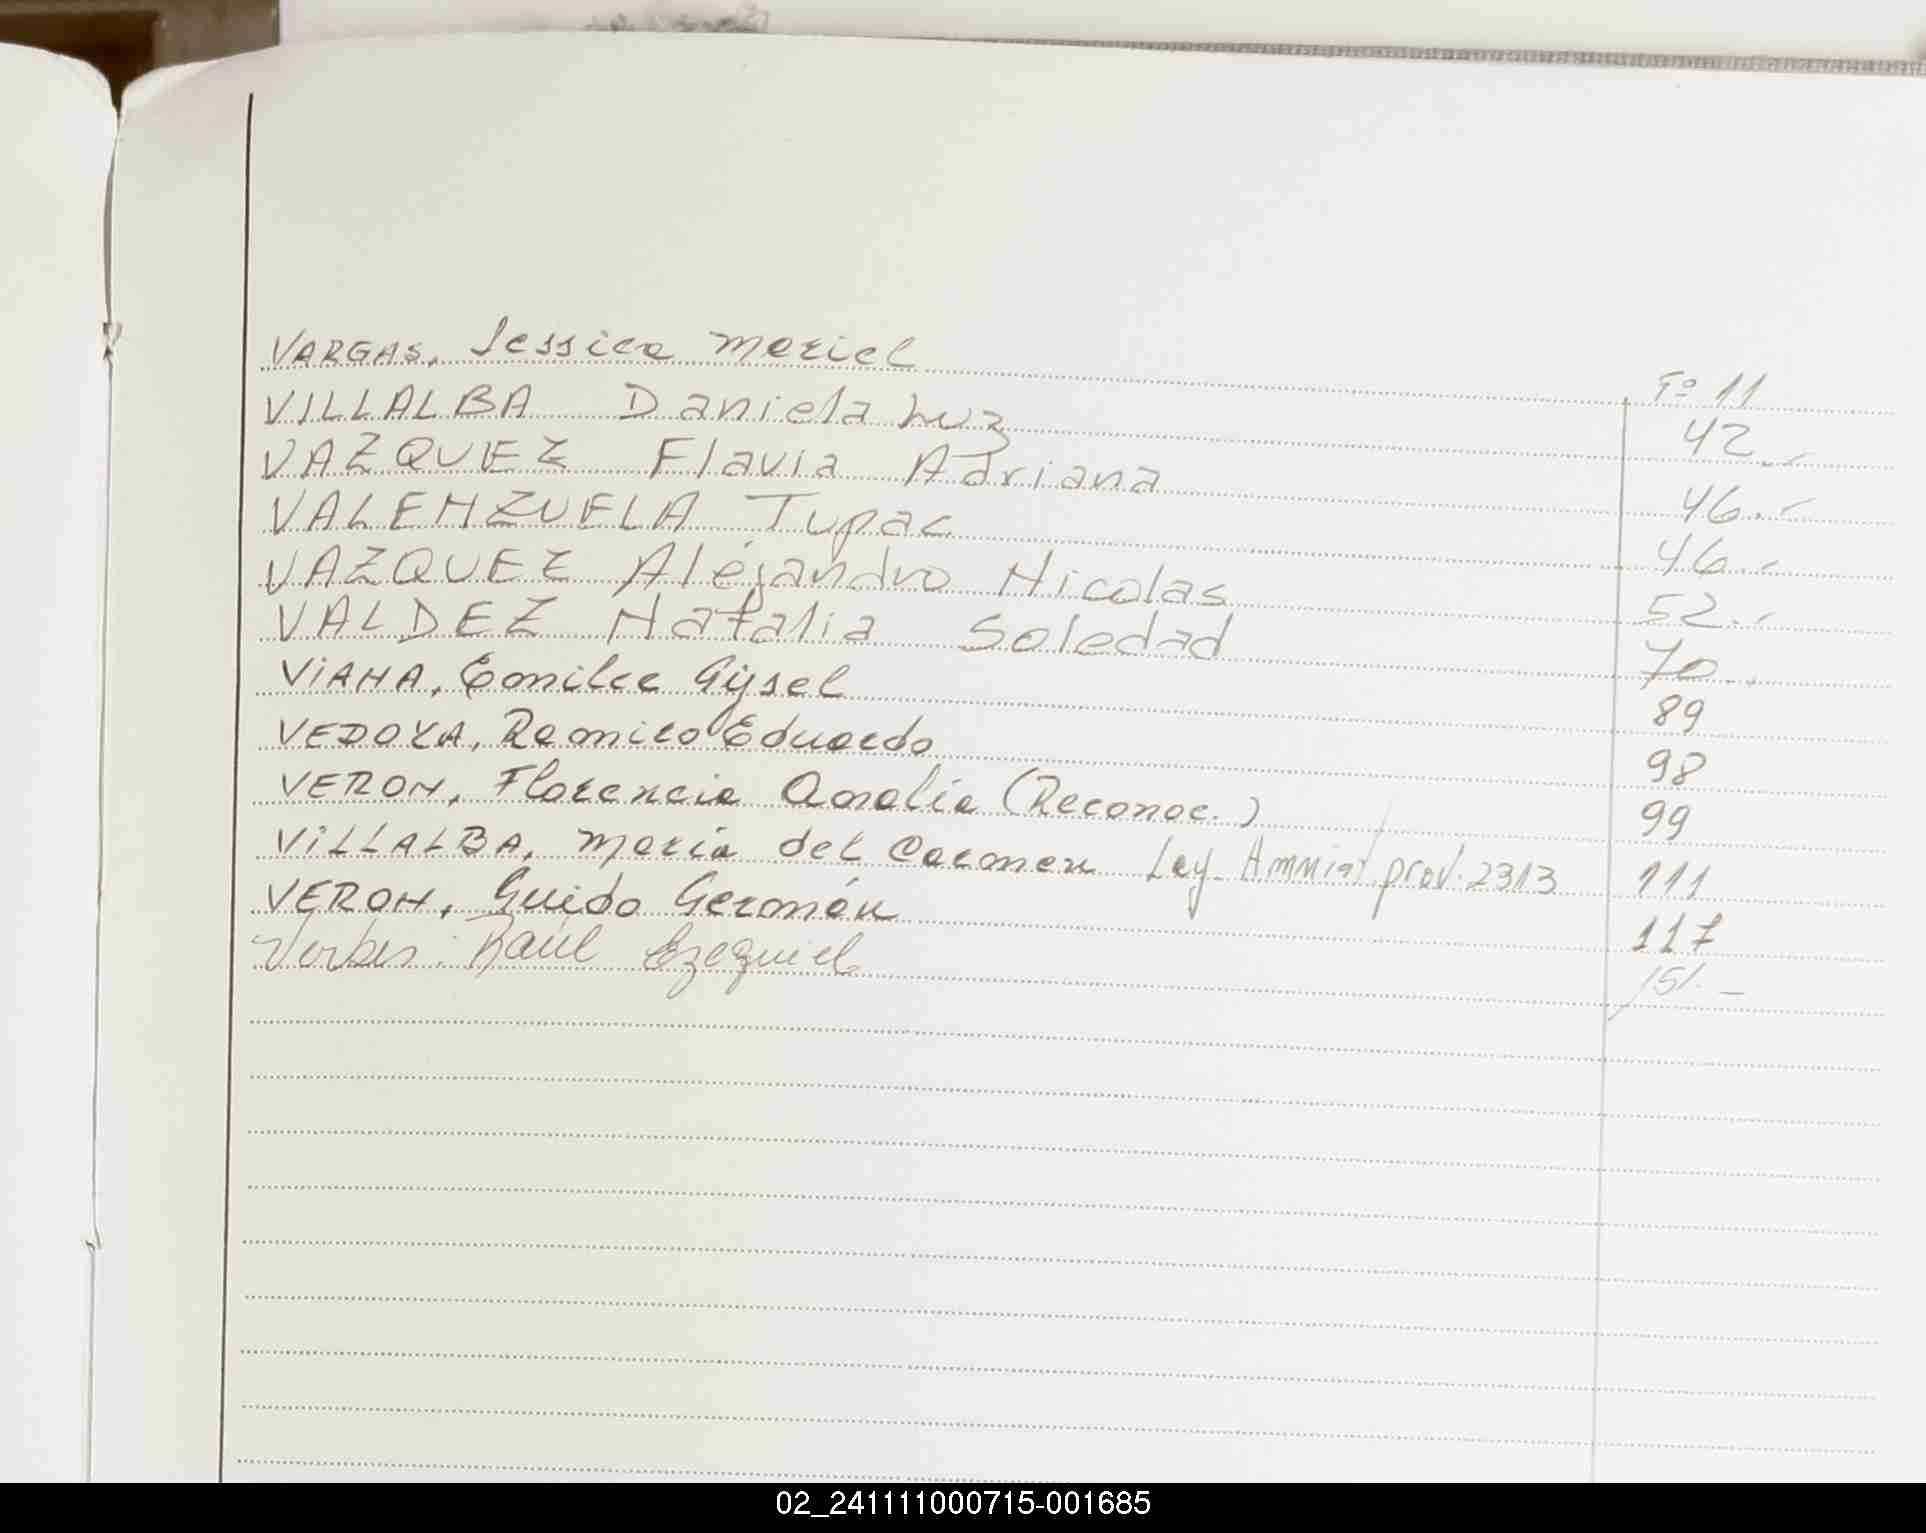 VARGAS, Jessica Mariel Fº 11
VILLALBA Daniela Luz 42.-
VAZQUEZ Flavia Adriana 46.-
VALENZUELA Tupac 46.-
VAZQUEZ Alejandro Nicolas 52.-
VALDEZ Natalia Soledad 70.-
ViANA, Emilce Gijsel 89
VEDOYA, Ramiro Eduardo 98
VERON, Florencia Analía (Reconoc.) 99
ViLLALBA, María del Carmen Ley Amnist prov. 2313 111
VERON, Guido Germán 117
Raúl Ezequiel 151.-
02_241111000715-001685